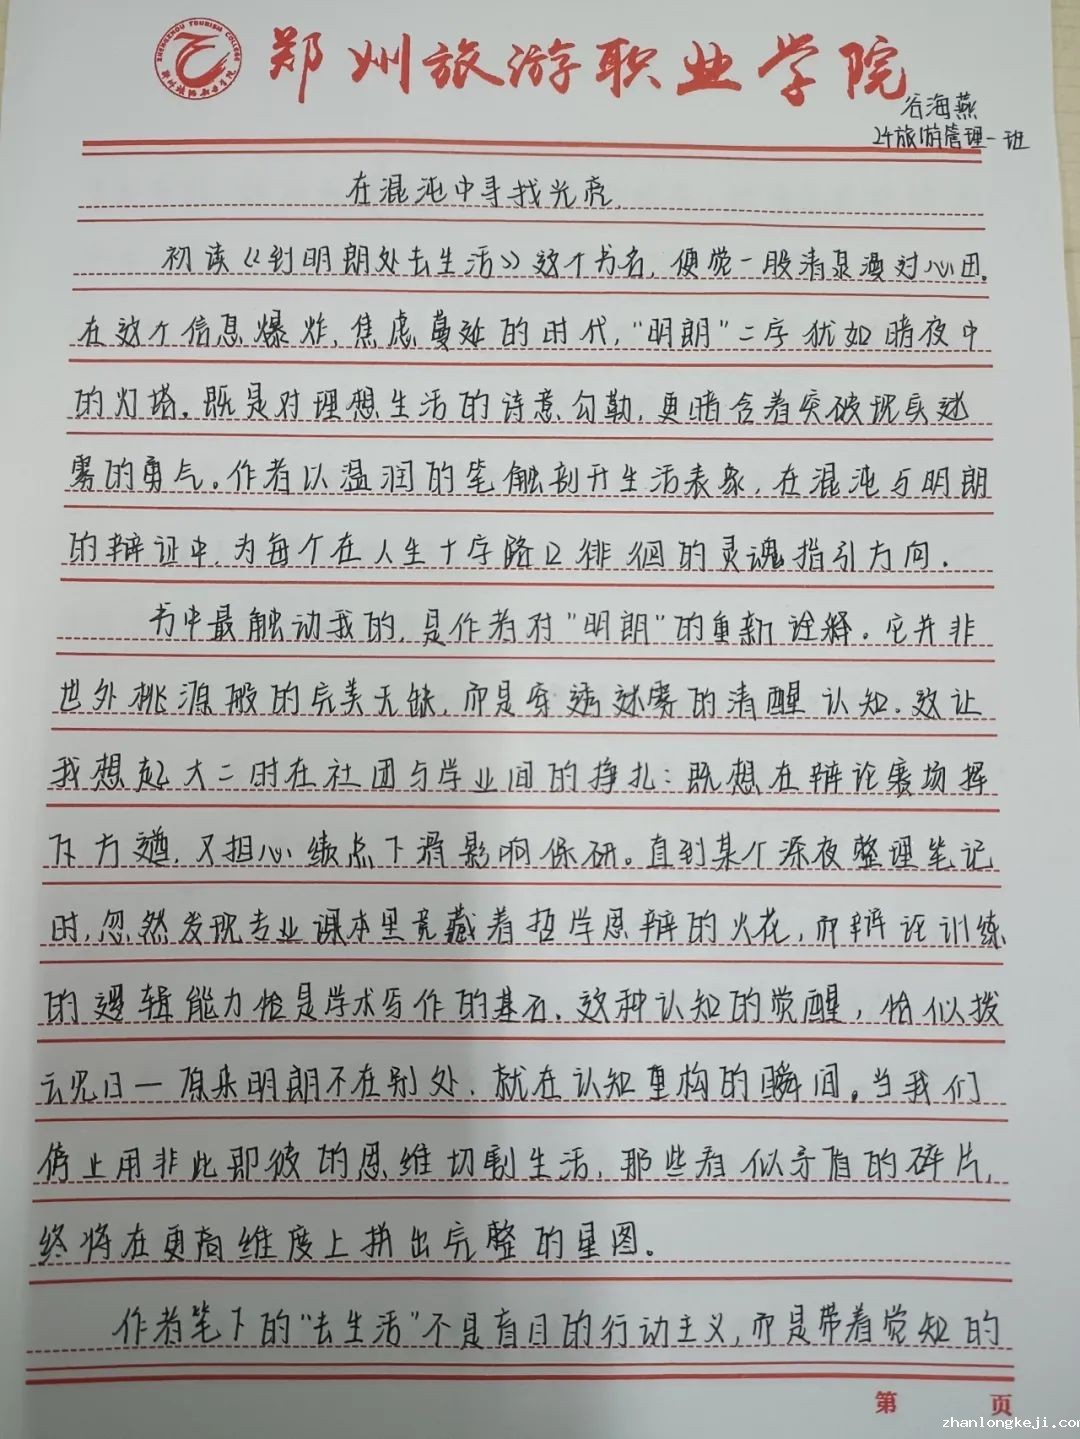 ZHENGZHOU TOURISM COLLEGE
郑州旅游职业学院
郑州旅游职业学院
谷海燕
24旅游管理一班
在混沌中寻找光亮
初读《到明朗处去生活》这个书名,便觉一股清泉漫过心田。
在这个信息爆炸,焦虑蔓延的时代,“明朗”二字犹如暗夜中
的灯塔。既是对理想生活的诗意勾勒,更暗含着突破现实迷
雾的勇气。作者以温润的笔触剖开生活表象,在混沌与明朗
的辩证中,为每个在人生十字路口徘徊的灵魂指引方向.
书中最触动我的,是作者对“明朗”的重新诠释。它并非
世外桃源般的完美无缺,而是穿透迷雾的清醒认知.这让
我想起大二时在社团与学业间的挣扎:既想在辩论赛场挥
斥方遒,又担心绩点下滑影响保研。直到某个深夜整理笔记
时,忽然发现专业课本里竟藏着哲学思辩的火花,而辩论训练
的逻辑能力恰是学术写作的基石.这种认知的觉醒,恰似拨
云见日—原来明朗不在别处,就在认知重构的瞬间。当我们
停止用非此即彼的思维切割生活,那些看似矛盾的碎片,
终将在更高维度上拼出完整的星图。
作者笔下的“去生活”不是盲目的行动主义,而是带着觉知的
第 页
zhanlongkeji.com